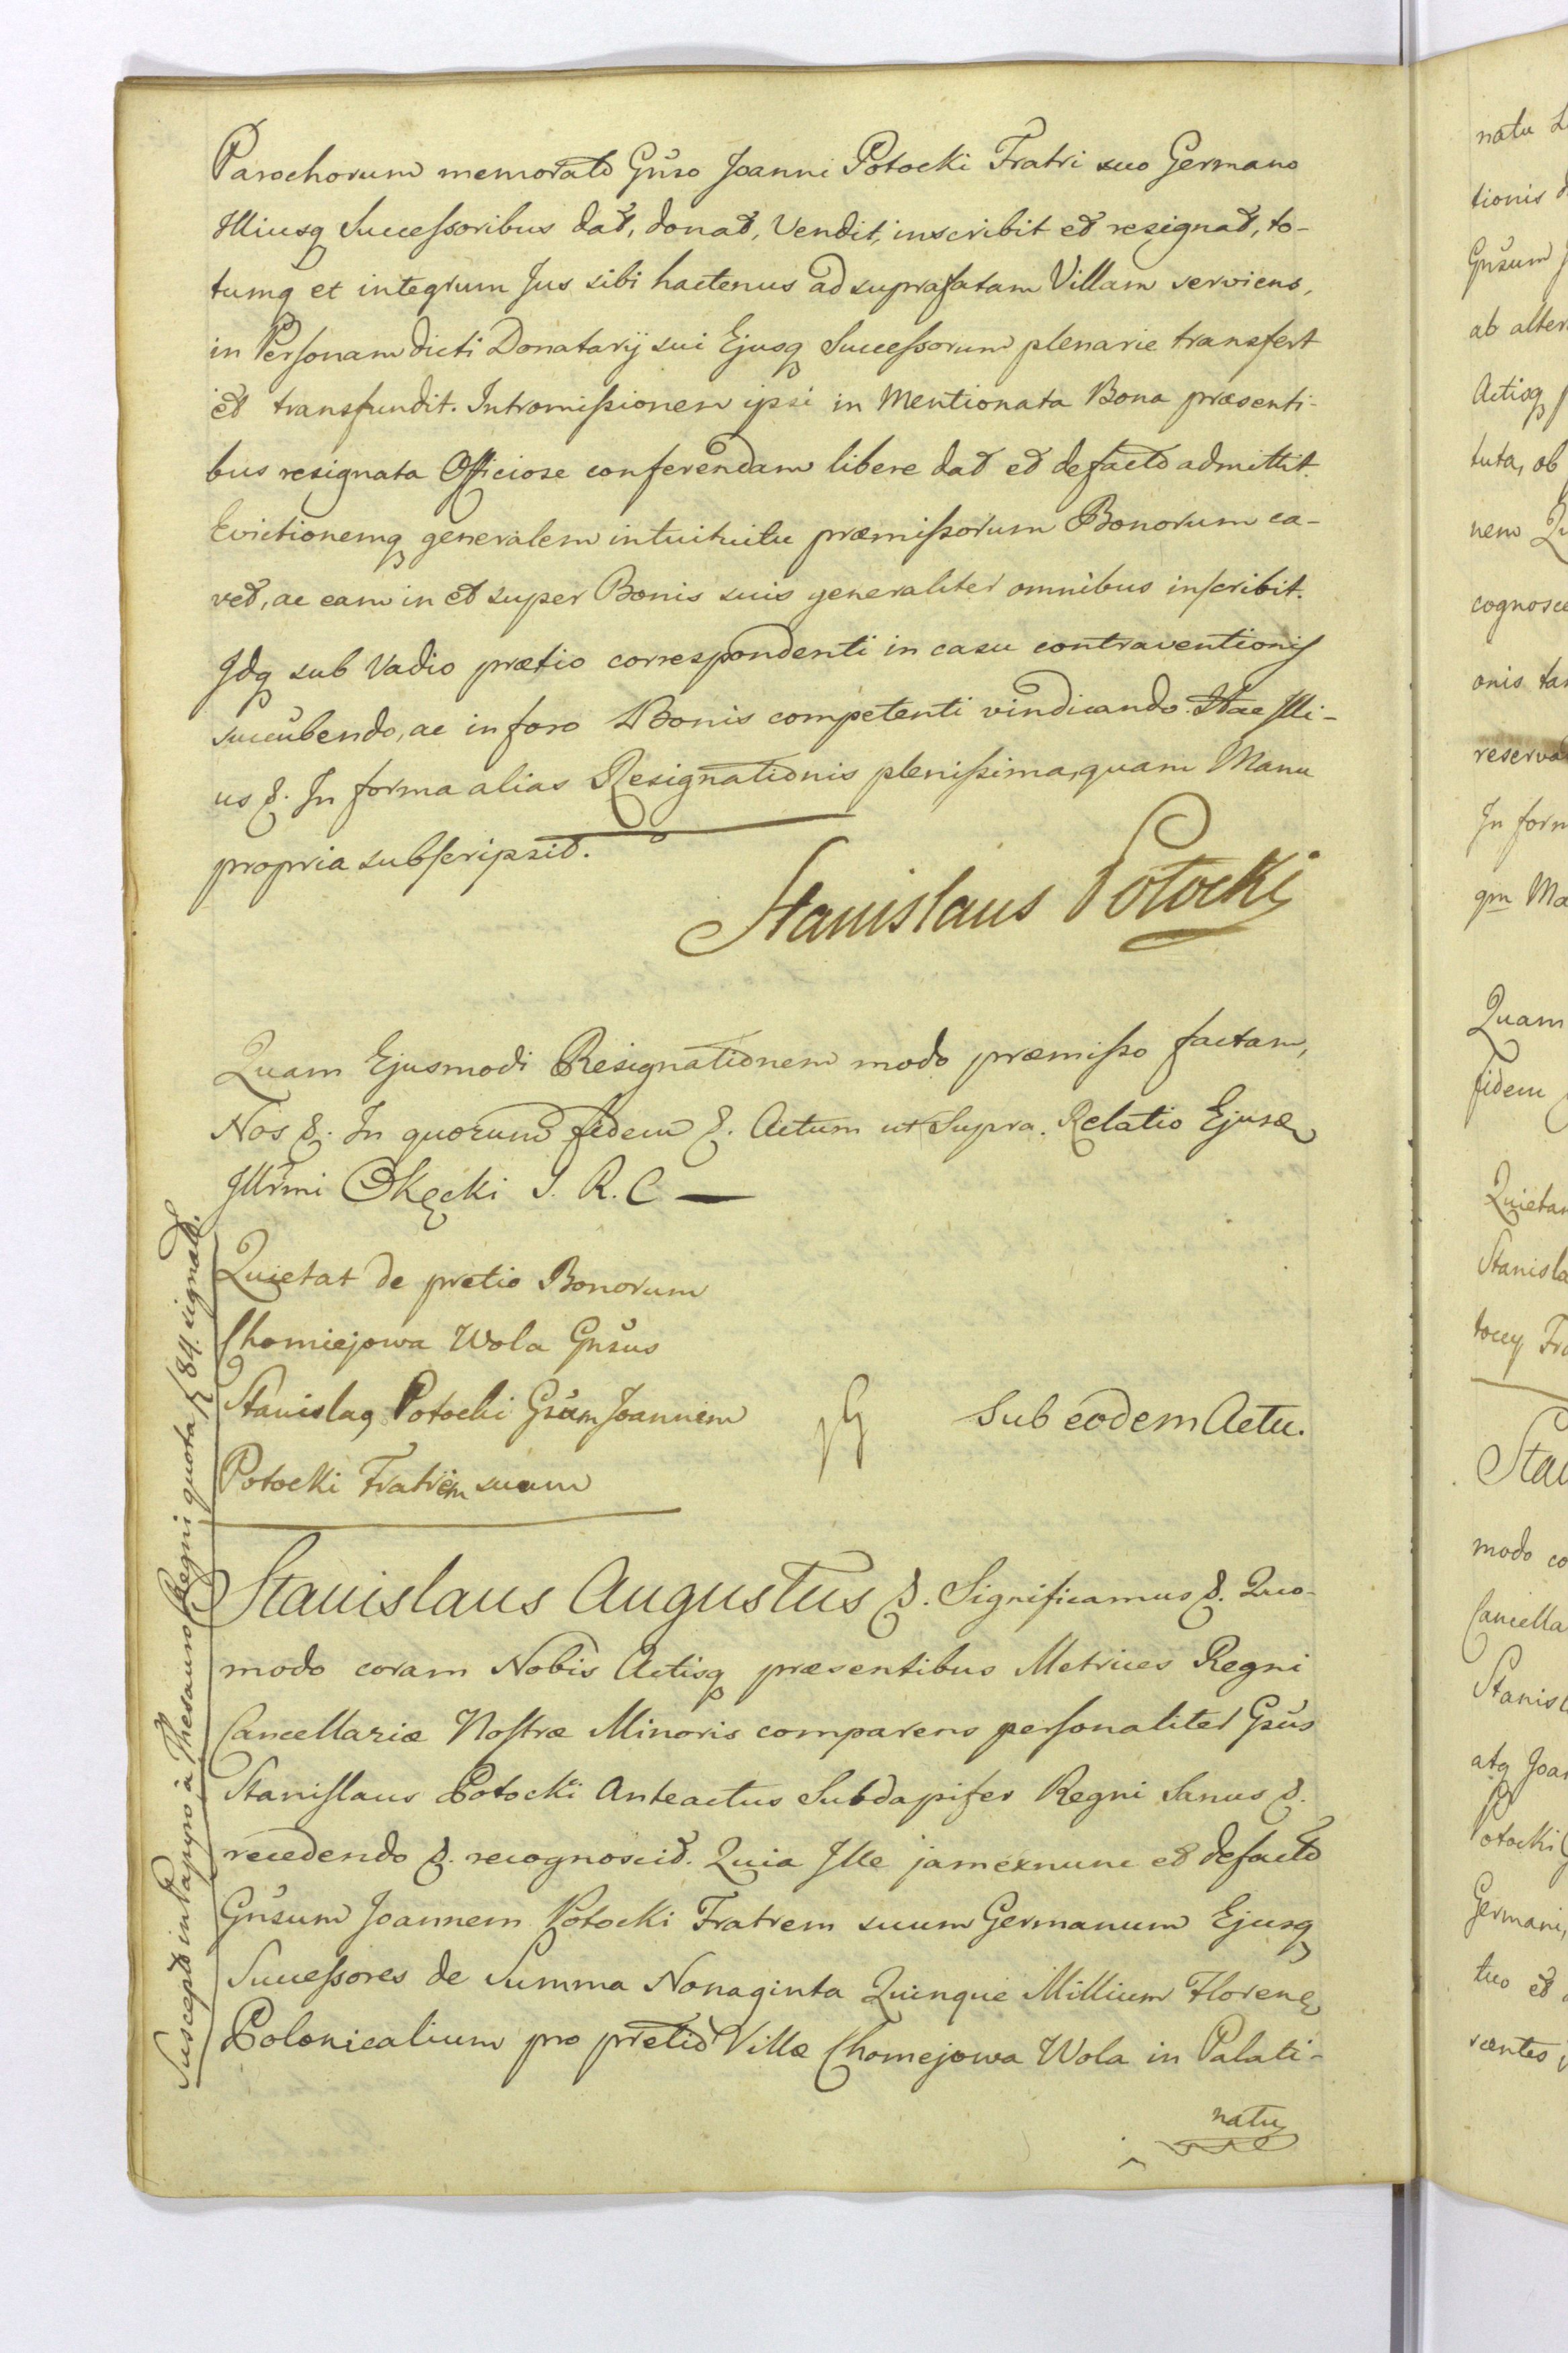 Parochorum memorato Gñso Joanni Potocki Fratri suo Germano
Illiusq Successoribus dat, donat, Vendit, inscribit et resignat, to-
tumq et integrum Jus sibi hactenus ad suprafatam Villam serviens,
in Personam dicti Donatarij sui Ejusq Successorum plenarie transfert
et transfundit. Intromissionem ipsi in Mentionata Bona præsenti-
bus resignata Officiose conferendam libere dat et defacto admittit.
Evictionemq generalem intuituitu præmissorum Bonorum ca-
vet, ac eam in et super Bonis suis generaliter omnibus inscribit.
Idq sub Vadio prætio correspondenti in casu contraventionis
succubendo, ac in foro Bonis competenti vindicando. Hac Illi-
us &. In forma alias Resignationis plenissima, quam Manu
propria subscripsit.
Stanislaus Potocki
Quam Ejusmodi Resignationem modo præmisso factam,
Nos &. In quorum fidem &. Actum ut Supra. Relatio Ejusd
Illr̃mi Okęcki S. R. C —
Quietat de pretio Bonorum
Chomiejowa Wola Gñsus
Stanislaq Potocki Gsum Joannem
Potocki Fratrem suum
Sub eodem Actu.
Stanislaus Augustus &. Significamus &. Quo-
modo coram Nobis Actisq præsentibus Metrices Regni
Cancellariæ Nostræ Minoris comparens personaliter Gsus
Stanislaus Potocki Anteactus Subdapifer Regni Sanus &.
recedendo &. recognoscit. Quia Ille jam exnunc et defacto
Gñsum Joannem Potocki Fratrem suum Germanum Ejusq
Successores de Summa Nonaginta Quinque Millium Floren
Polonicalium pro pretio Villæ Chomejowa Wola in Palati-
natu
Suscepta in Papyro à Thesauro Regni quota f 84. signata.
natu
tionis
Gñsum
ab alter
Actisq
tuta, ob
nem
cognosce
onis
reserva
In form
qm Ma
Quam
fidem
Quietan
Stanisla
tocy Fra
Sta
modo co
Cancella
Stanis
atq Joan
Potocki
Germani,
tuo et